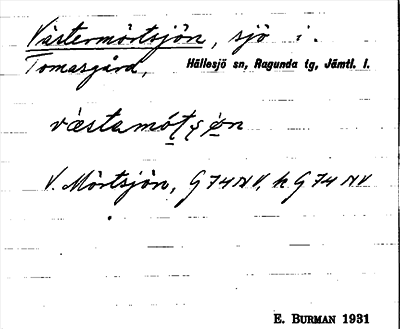 Västermörtsjön, sjö i.
Tomasgård, Hällesjö sn, Ragunda tg, Jämtl. l.
V. Mörtsjön, G 74 NV, h G 74 NV
E. BURMAN 1931